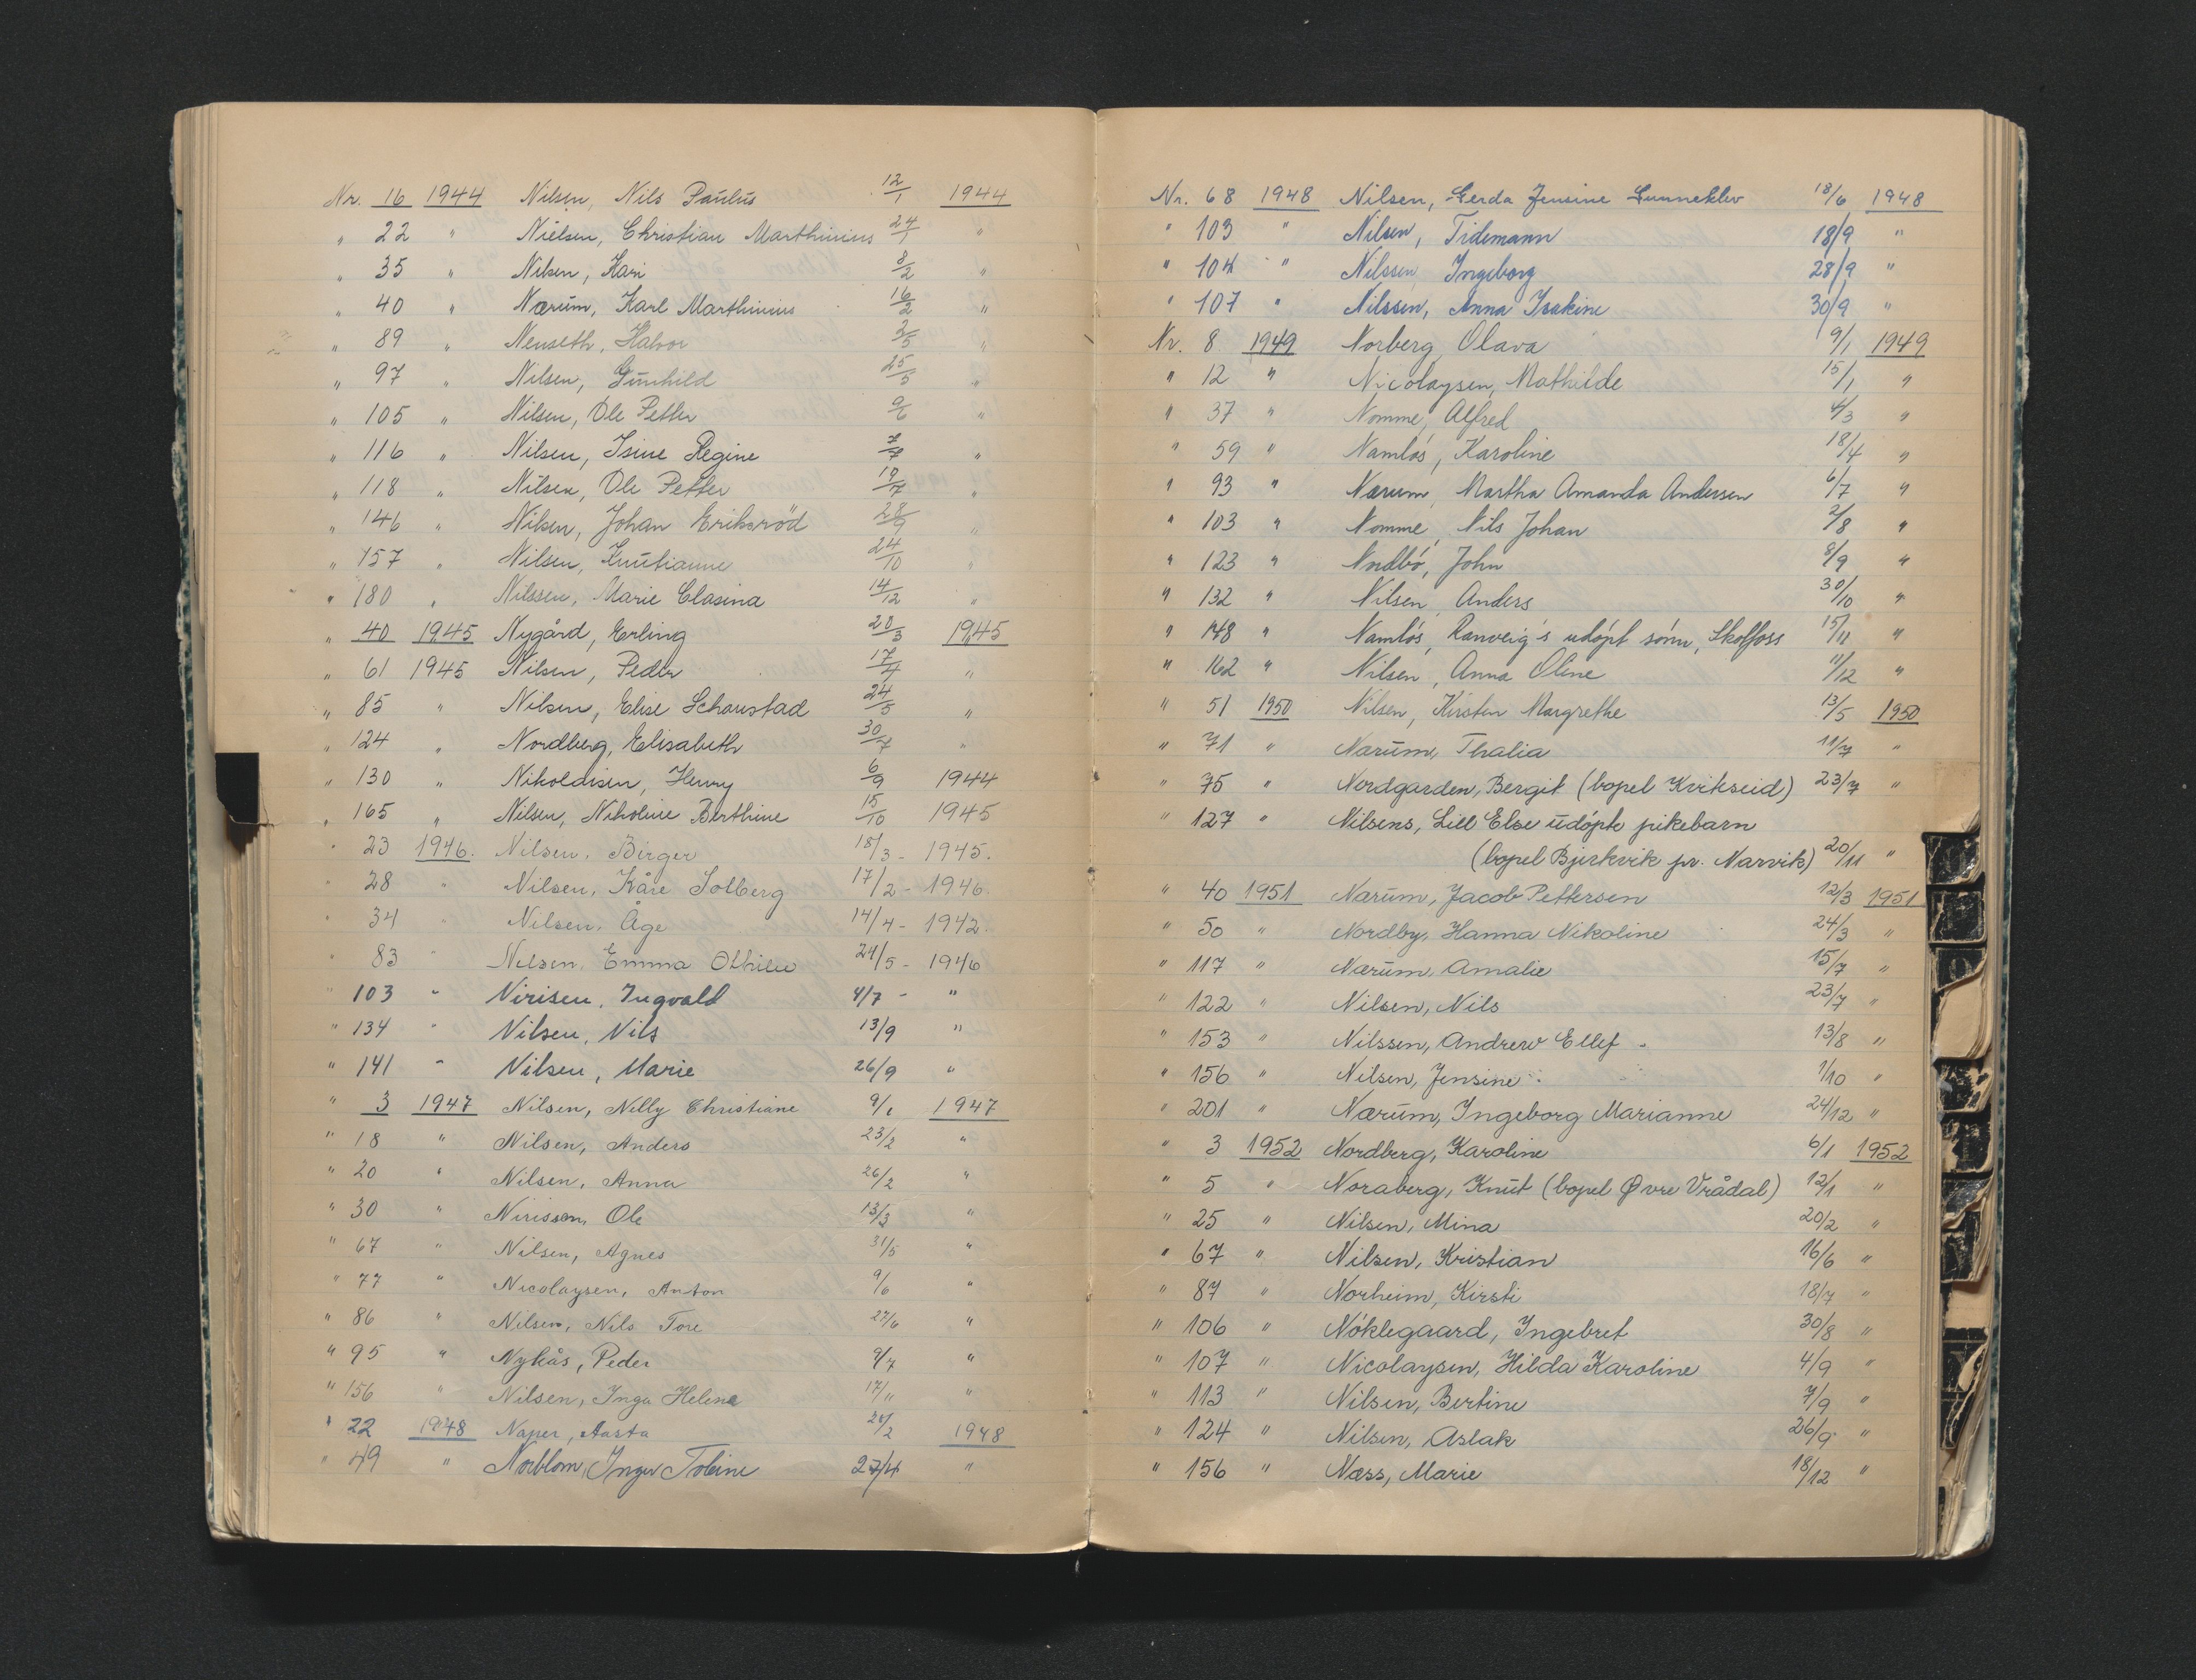 Nr. 16 1944 Nilsen, Nils Paulus 12/1 1944
" 22 " Nielsen, Christian Marthinius 24/1 "
" 35 " Nilsen, Kari 8/2 "
" 40 " Nærum, Karl Marthinius 16/2 "
" 89 " Nenseth, Halvor 3/5 "
" 97 " Nilsen, Gunhild 25/5 "
" 105 " Nilsen, Ole Petter 9/6 "
" 116 " Nilsen, Isine Regine "
" 118 " Nilsen, Ole Petter 19/7 "
" 146 " Nilsen, Johan Eriksröd 28/9 "
" 157 " Nilsen, Knutianne 24/10 "
" 180 " Nilssen, Marie Clasina 14/12 "
" 40 1945 Nygård, Erling 20/3 1945
" 61 1945 Nilsen, Peder 17/4 "
" 85 " Nilsen, Elise Schaustad 24/5 "
" 124 " Nordberg, Elisabeth 30/7 "
" 130 " Nikoldisen, Henry 6/9 1944
" 165 " Nilsen, Nikoline Berthine 15/10 1945
" 23 1946. Nilsen, Birger 18/3 - 1945.
" 28 " Nilsen, Kåre Solberg 17/2 - 1946.
" 34 " Nilsen, Åge 14/4 - 1942.
" 83 " Nilsen, Emma Othilie 24/5 - 1946
" 103 " Nirisen, Ingvald 4/7 - "
" 134 " Nilsen, Nils 13/9 "
" 141 " Nilsen, Marie 26/9 "
" 3 1947 Nilsen, Nelly Christiane 9/1 1947
" 18 " Nilsen, Anders 23/2 "
" 20 " Nilsen, Anna 26/2 "
" 30 " Nirissen, Ole 13/3 "
" 67 " Nilsen, Agnes 31/5 "
" 77 " Nicolaysen, Anton 9/6 "
" 86 " Nilsen, Nils Tore 27/6 "
" 95 " Nykås, Peder 9/7 "
" 156 " Nilsen, Inga Helene 17/11 "
" 22 1948 Naper, Aasta 24/2 1948
" 49 " Norblom, Inger Tobine 27/4 "
Nr. 68 1948 Nilsen, Gerda Jensine Gunneklev 18/6 1948
" 103 " Nilsen, Tidemann 18/9 "
" 104 " Nilssen, Ingeborg 28/9 "
" 107 " Nilssen, Anna Isakine 30/9 "
Nr. 8 1949 Norberg, Olava 9/1 1949
" 12 " Nicolaysen, Mathilde 15/1 "
" 37 " Nomme, Alfred 4/3 "
" 59 " Namlós, Karoline 18/4 "
" 93 " Nærum, Martha Amanda Andersen 6/7 "
" 103 " Nomme, Nils Johan 2/8 "
" 123 " Nordbó, John 8/9 "
" 132 " Nilsen, Anders 30/10 "
" 148 " Namlós, Ranveig's udópt sónn, Skotfoss 15/11 "
" 162 " Nilsen, Anna Oline 11/12 "
" 51 1950 Nilsen, Kirsten Margrethe 13/5 1950
" 71 " Narum, Thalia 11/7 "
" 75 " Nordgarden, Bergit (bopel Kvikseid) 23/7 "
" 127 " Nilsens, Lill Else udópte pikebarn
(bopel Bjerkvik pr. Narvik) 20/11 "
" 40 1951 Nærum, Jacob Pettersen 12/3 1951
" 50 " Nordby, Hanna Nikoline 24/3 "
" 117 " Nærum, Amalie 15/7 "
" 122 " Nilsen, Nils 23/7 "
" 153 " Nilssen, Andrew Ellef 13/8 "
" 156 " Nilsen, Jensine 1/10 "
" 201 " Nærum, Ingeborg Marianne 24/12 "
" 3 1952 Nordberg, Karoline 6/1 1952
" 5 " Noraberg, Knut (bopel Øvre Vrådal) 12/1 "
" 25 " Nilsen, Mina 20/2 "
" 67 " Nilsen, Kristian 16/6 "
" 87 " Norheim, Kirsti 18/7 "
" 106 " Nóklegaard, Ingebret 30/8 "
" 107 " Nicolaysen, Hilda Karoline 4/9 "
" 113 " Nilsen, Bertine 7/9 "
" 124 " Nilsen, Aslak 26/9 "
" 156 " Næss, Marie 18/12 "